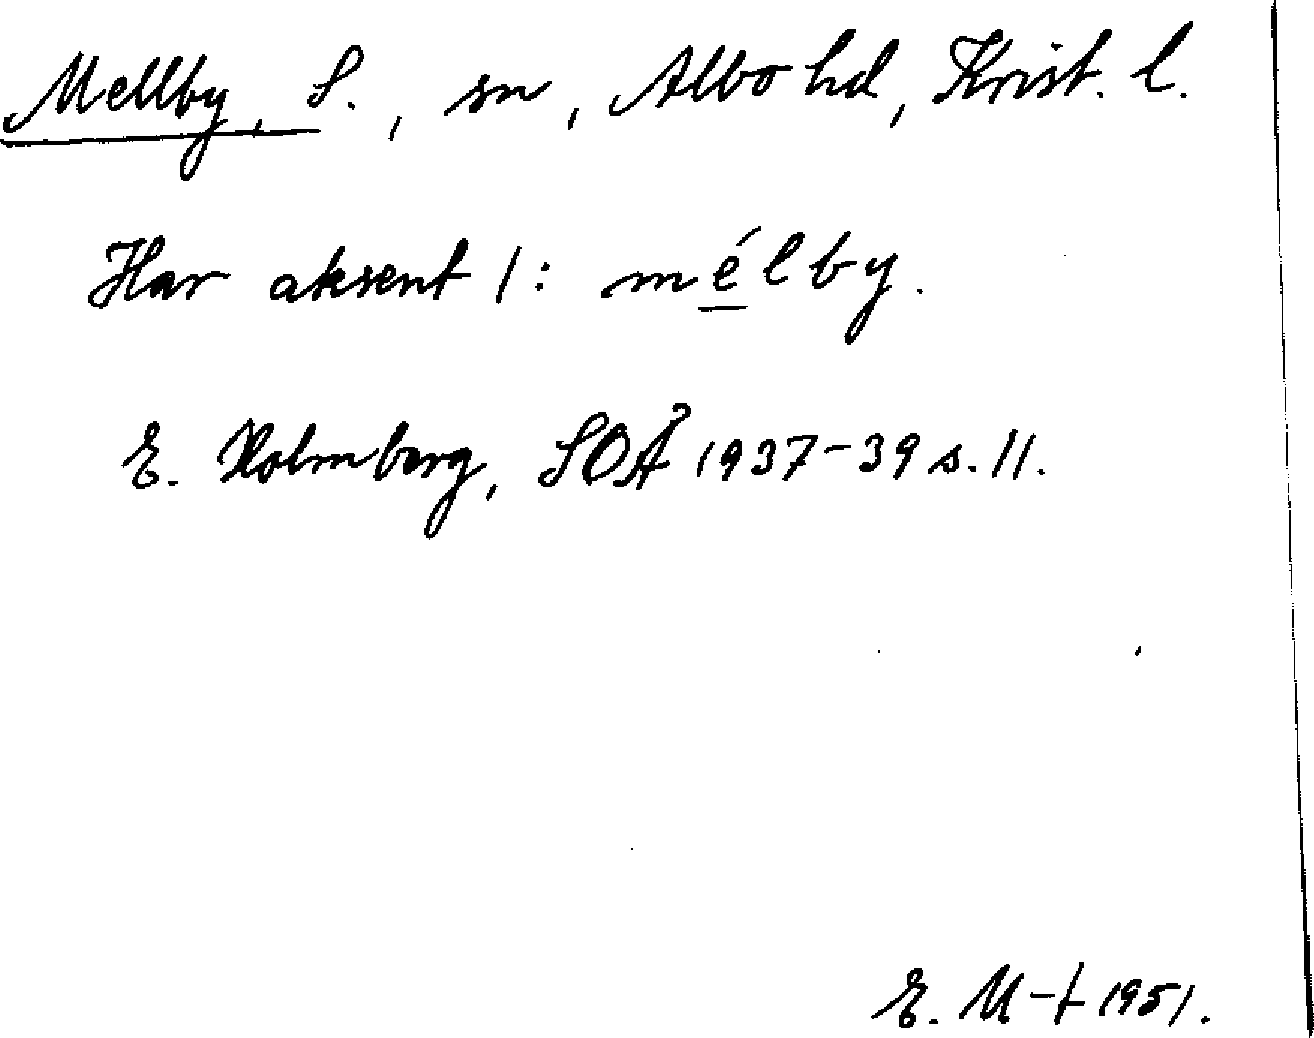 Mellby, S., sn, Albo hd, Krist. l.
Har aksent 1: mélby.
E. Holmberg, SOÅ 1937-39 s. 11.
E. M-t 1951.